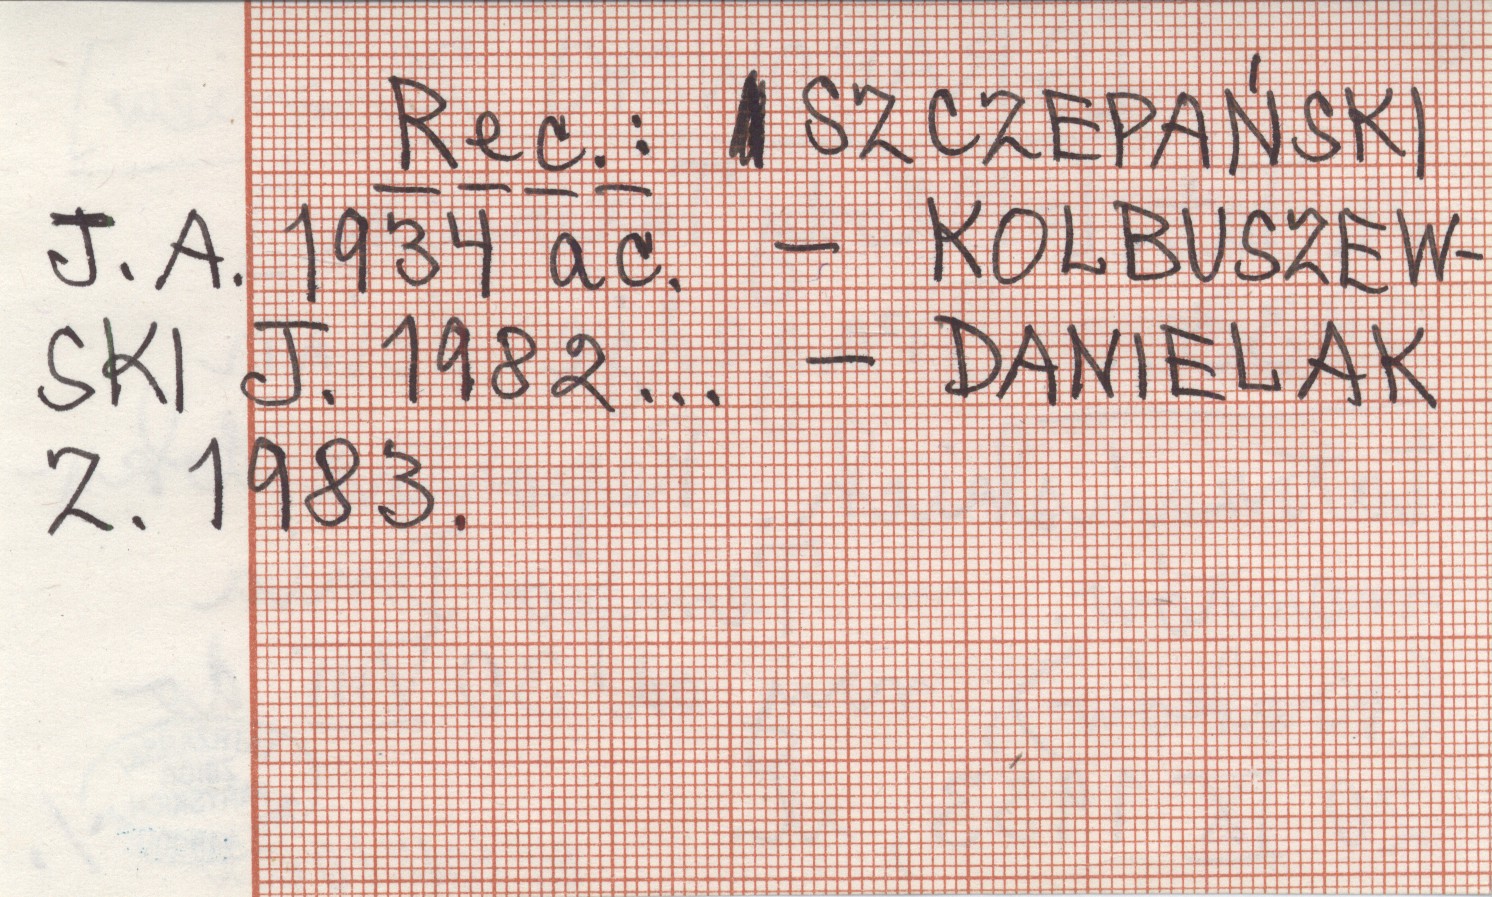 Rec.: SZCZEPAŃSKI
J. A. 1934 ac. – KOLBUSZEW-
SKI J. 1982... – DANIELAK
Z. 1983.